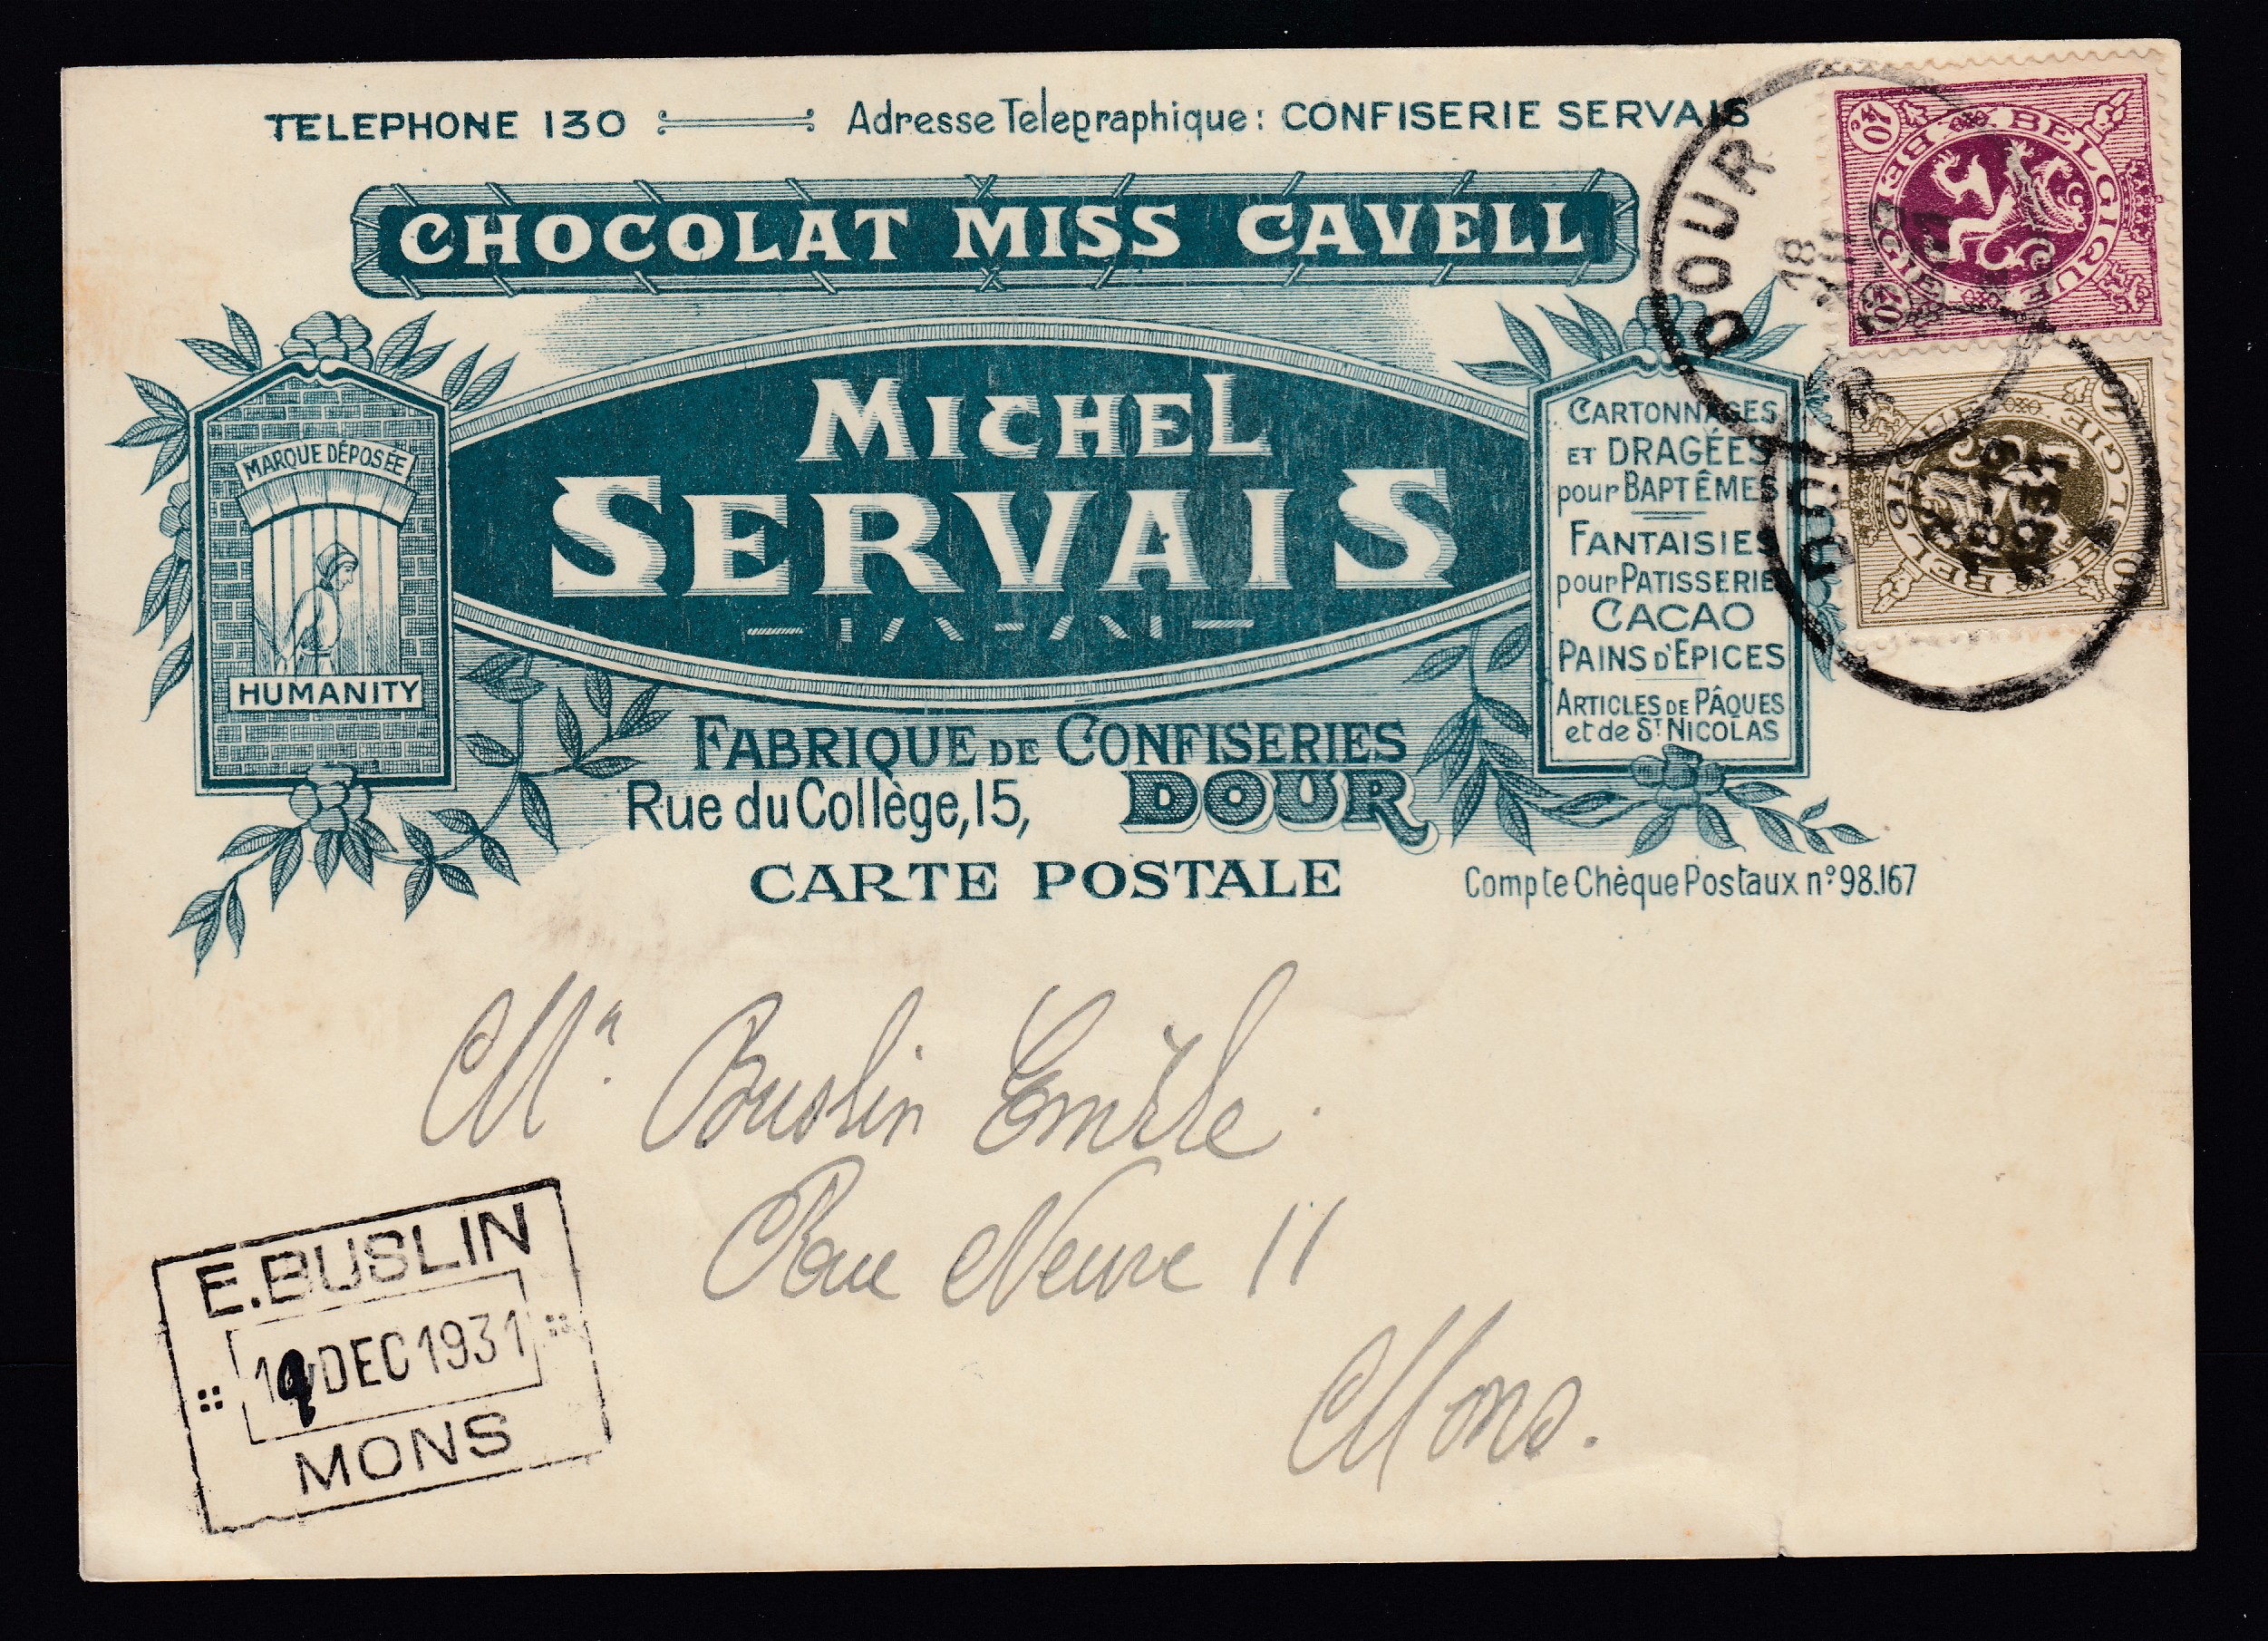 TELEPHONE 130 Adresse Telegraphique: CONFISERIE SERVAIS
CHOCOLAT MISS CAVELL
MARQUE DÉPOSÉE
HUMANITY
MICHEL
SERVAIS
CARTONNAGES
ET DRAGÉES
pour BAPTÊMES
FANTAISIES
pour PATISSERIE
CACAO
PAINS D'EPICES
ARTICLES DE PÂQUES
et de ST NICOLAS
FABRIQUE DE CONFISERIES
Rue du Collège, 15, DOUR
CARTE POSTALE
Compte Chèque Postaux n° 98.167
DOUR
18
BELGIQUE
BELGIE
40c
40c
BELGIQUE
BELGIE
DOUR
Mr. Buslin Emile.
Rue Neuve 11
Mons.
E. BUSLIN
19 DEC 1931
MONS